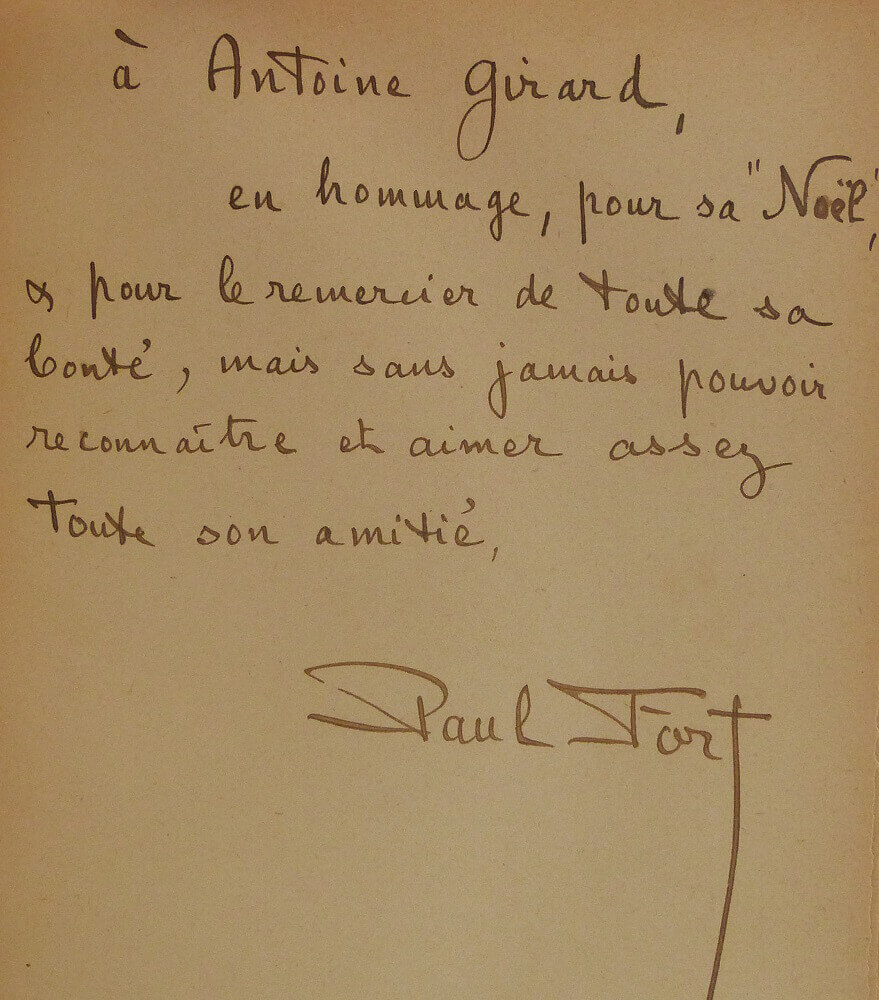 à Antoine Girard,
en hommage, pour sa "Noël",
& pour le remercier de toute sa
bonté, mais sans jamais pouvoir
reconnaître et aimer assez
toute son amitié,
Paul Fort